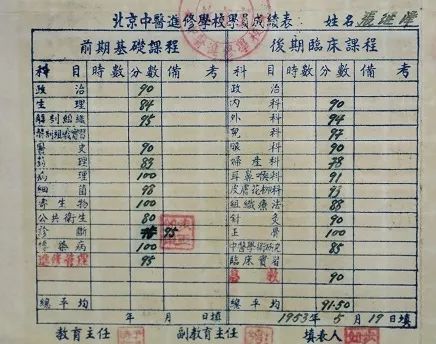 北京中醫進修學校學員成績表 姓名
前期基礎課程 後期臨床課程
科目 時數 分數 備考 科目 時數 分數 備考
政治 90 政治
生理 84 內科 90
解剖組織 95 外科 94
解剖組織實習 兒科 97
醫史 90 眼科 90
藥理 83 婦產科 78
病理 100 耳鼻喉科 91
細菌 98 皮膚花柳科 93
寄生物 100 組織療法 88
公共衛生 80 針灸 90
診斷 95 正骨 100
傳染病 100 中醫學術研究 85
進修管理 95 臨床實習
90
總平均 總平均 91.50
年 月 日填 1953年5月19日填
教育主任 副教育主任 填表人